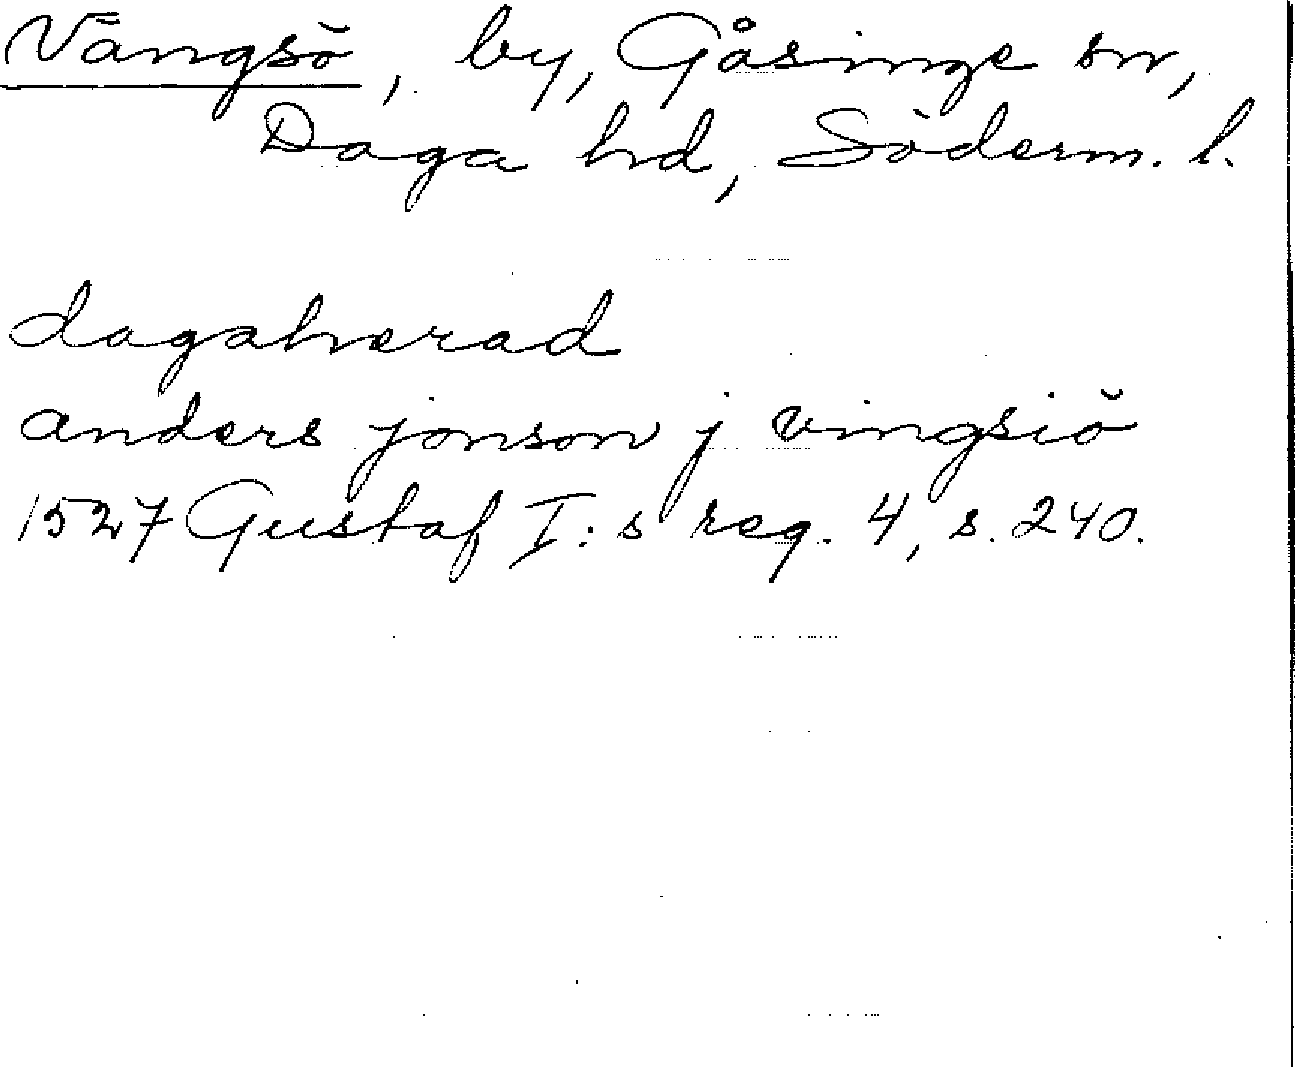 Vängsö, by, Gåsinge sn,
Daga hd, Söderm. l.
dagaherad
anders jonson j vingsiö
1527 Gustaf I:s reg. 4, s. 240.